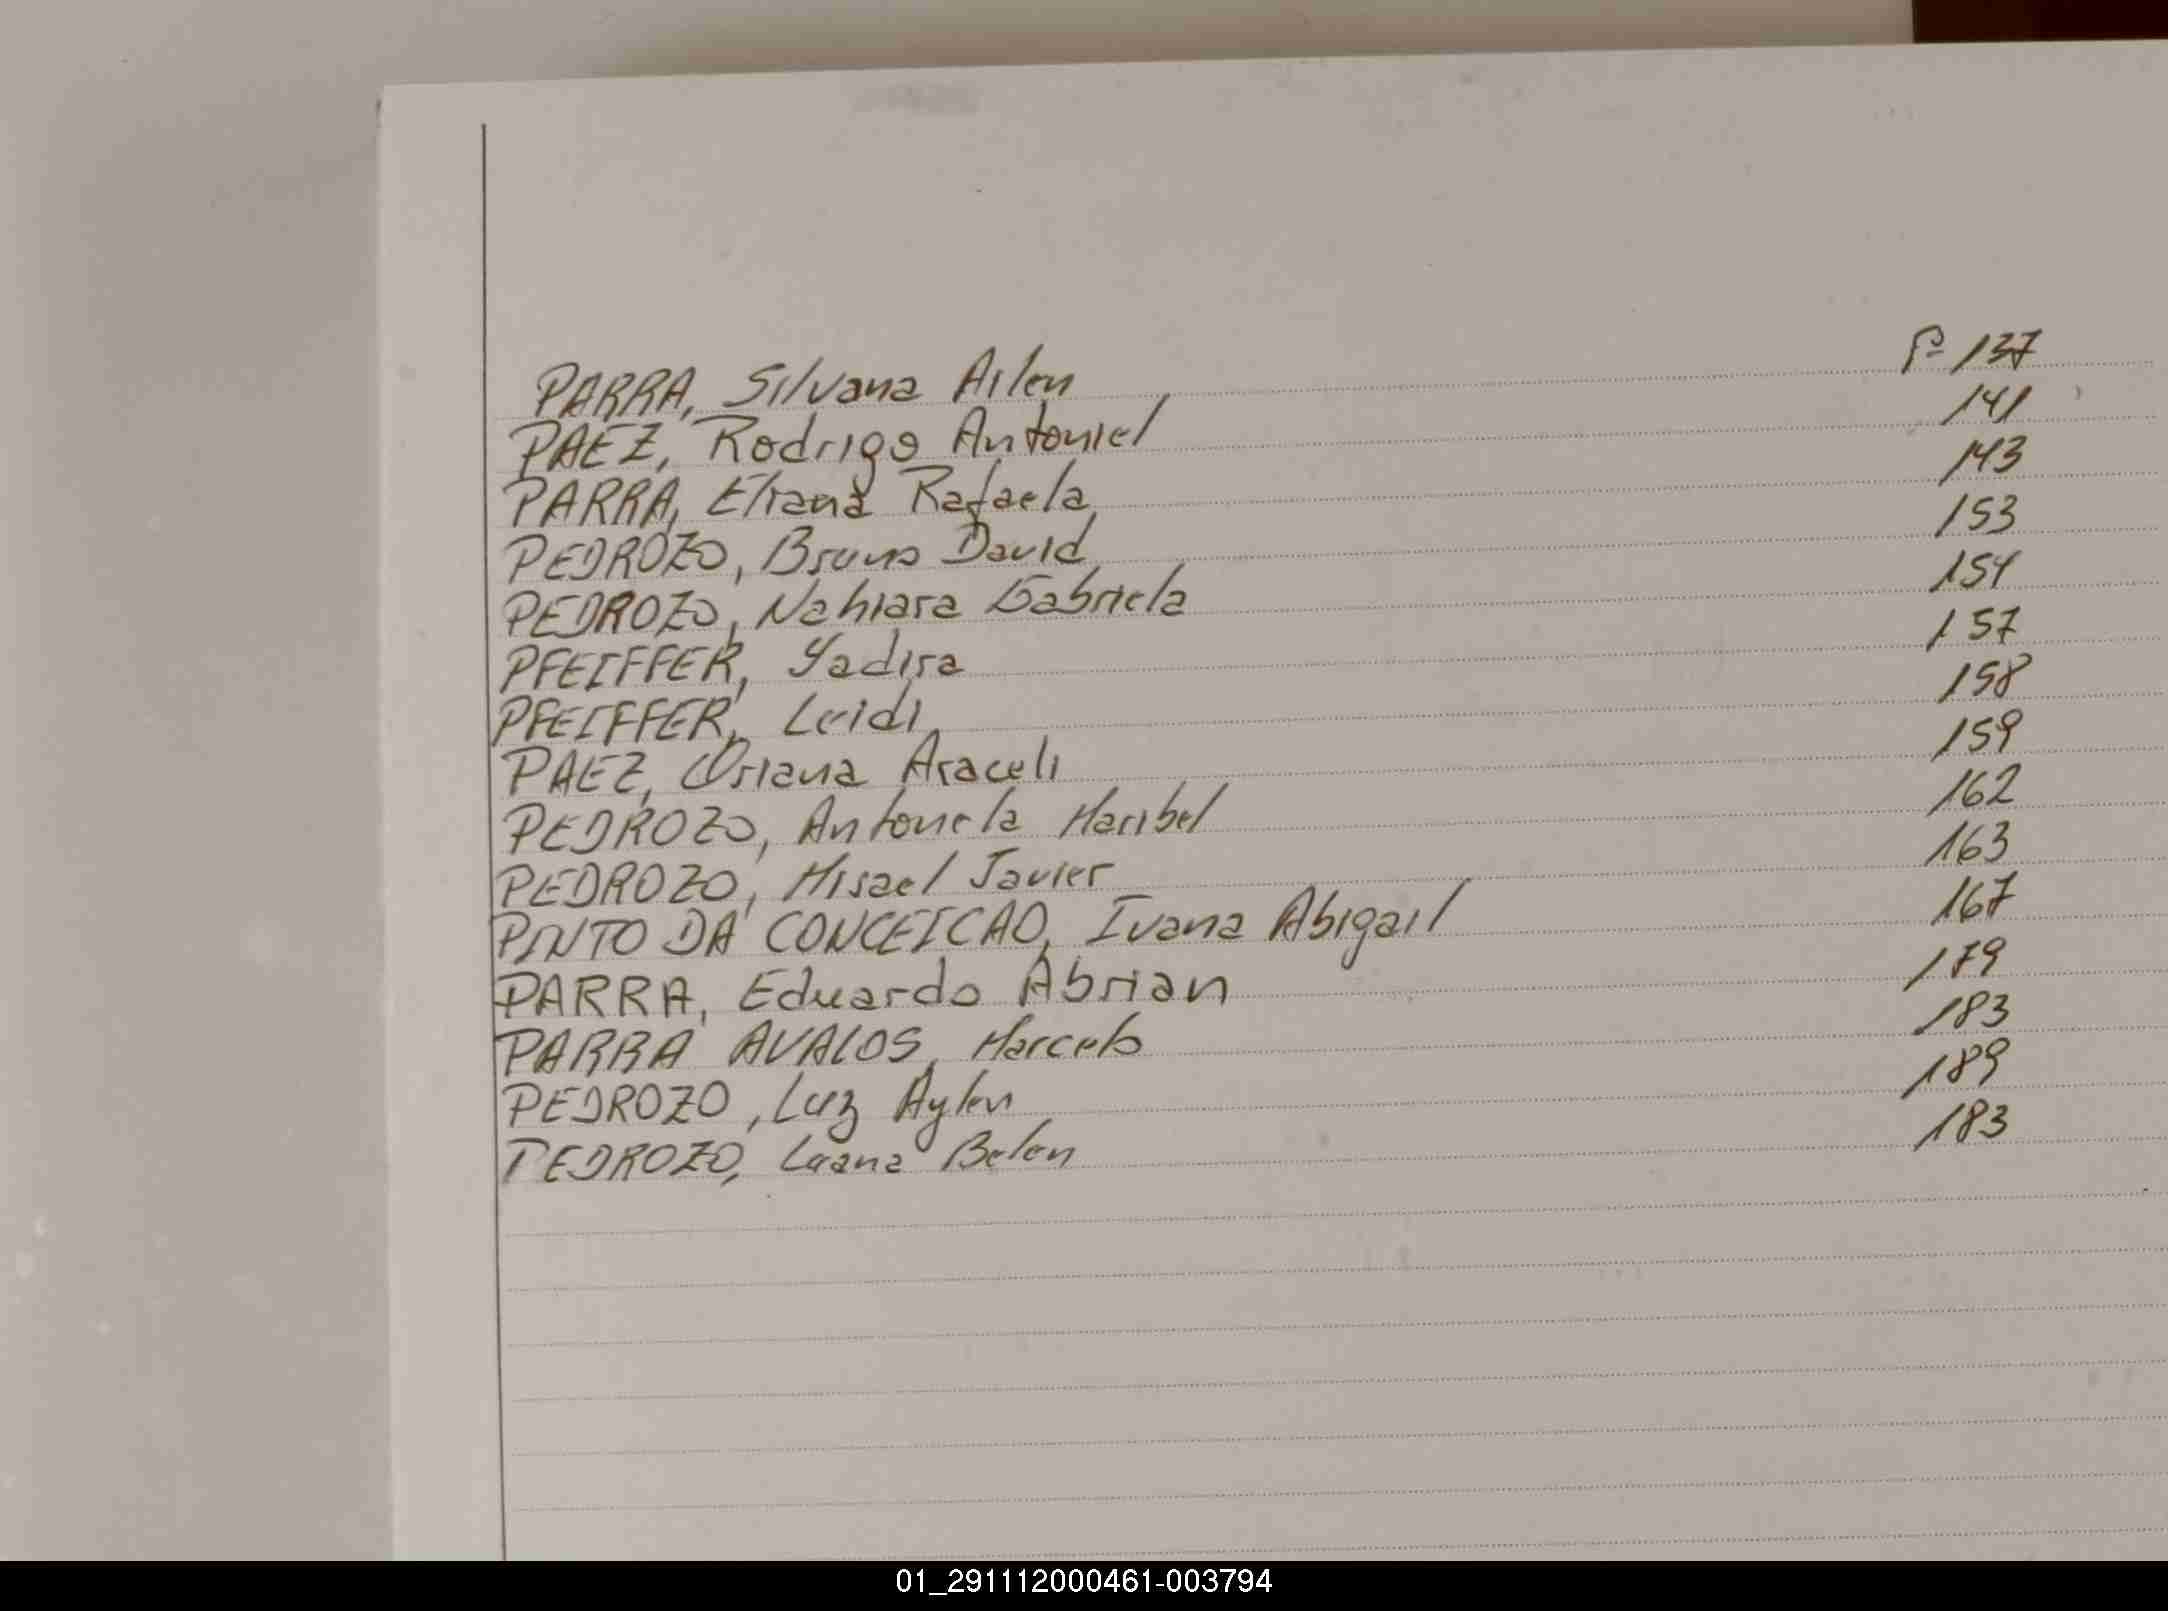 PARRA, Silvana Ailen Fº 137
PAEZ, Rodrigo Antoniel 141
PARRA, Eliana Rafaela 143
PEDROZO, Bruno David 153
PEDROZO, Nahiara Gabriela 154
PFEIFFER, Yadira 157
PFEIFFER, Leidi 158
PAEZ, Oriana Araceli 159
PEDROZO, Antonela Maribel 162
PEDROZO, Misael Javier 163
PINTO DA CONCEICAO, Ivana Abigail 167
PARRA, Eduardo Abrian 179
PARRA AVALOS, Marcelo 183
PEDROZO, Luz Aylen 189
PEDROZO, Luana Belen 183
01_291112000461-003794